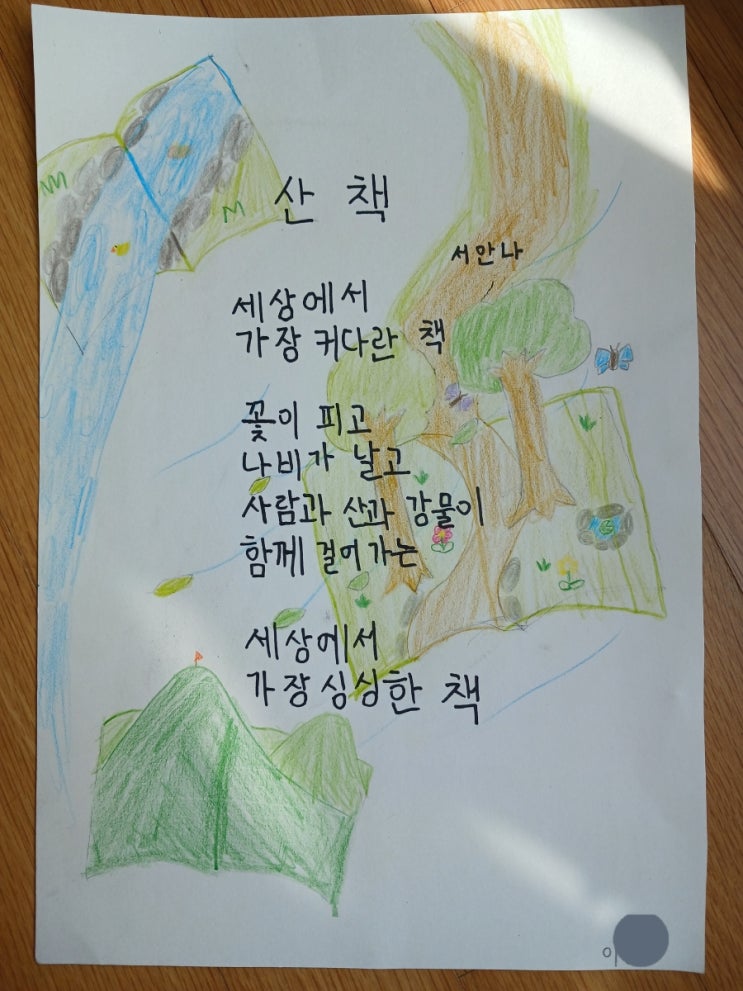 산 책
서안나
세상에서
가장 커다란 책
꽃이 피고
나비가 날고
사람과 산과 강물이
함께 걸어가는
세상에서
가장 싱싱한 책
이